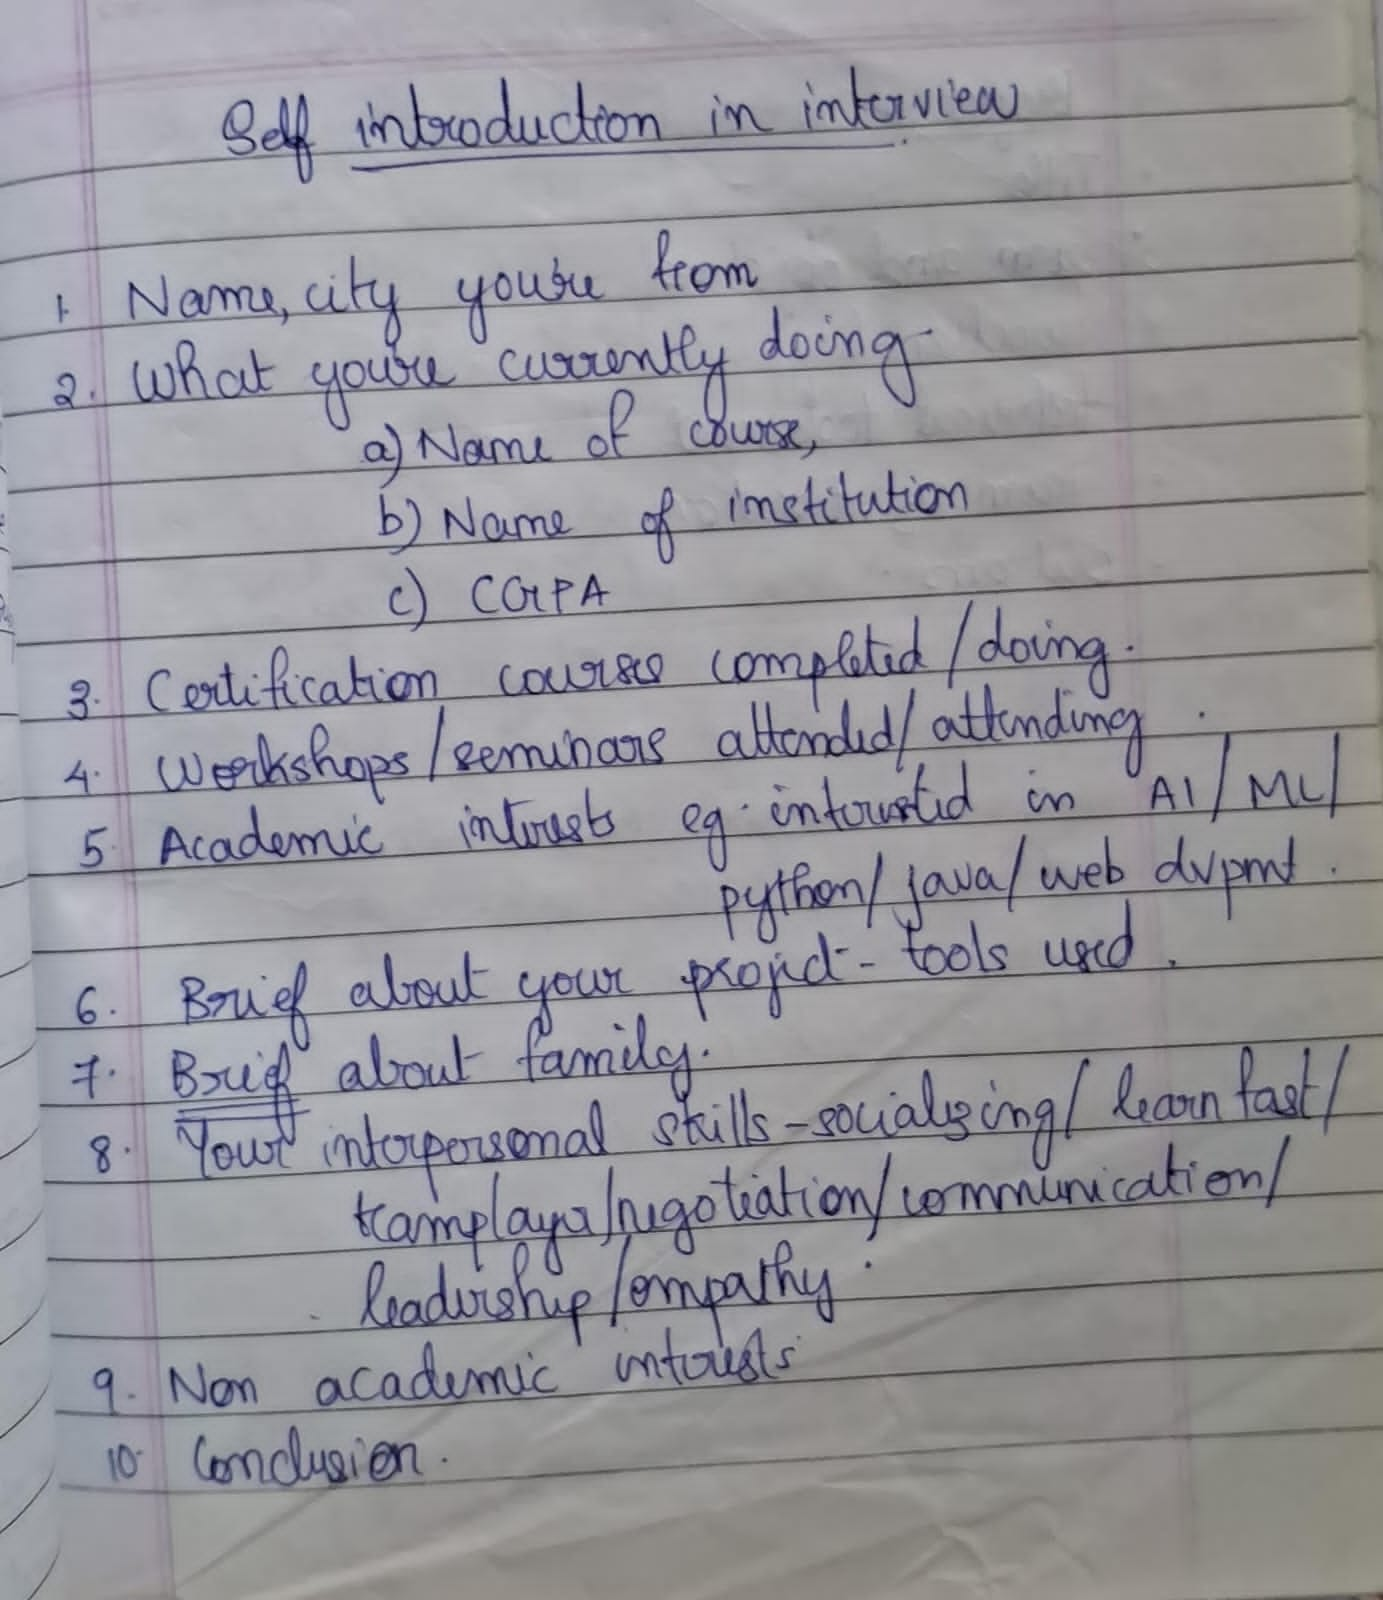 Self introduction in interview
1. Name, city you're from
2. What you're currently doing
a) Name of course,
b) Name of institution
c) CGPA
3. Certification courses completed/doing.
4. Workshops/seminars attended/attending.
5. Academic interests eg. interested in AI/ML/
python/java/web dvpmt.
6. Brief about your project - tools used.
7. Brief about family.
8. Your interpersonal skills - socializing/learn fast/
teamplayer/negotiation/communication/
leadership/empathy.
9. Non academic interests
10. Conclusion.